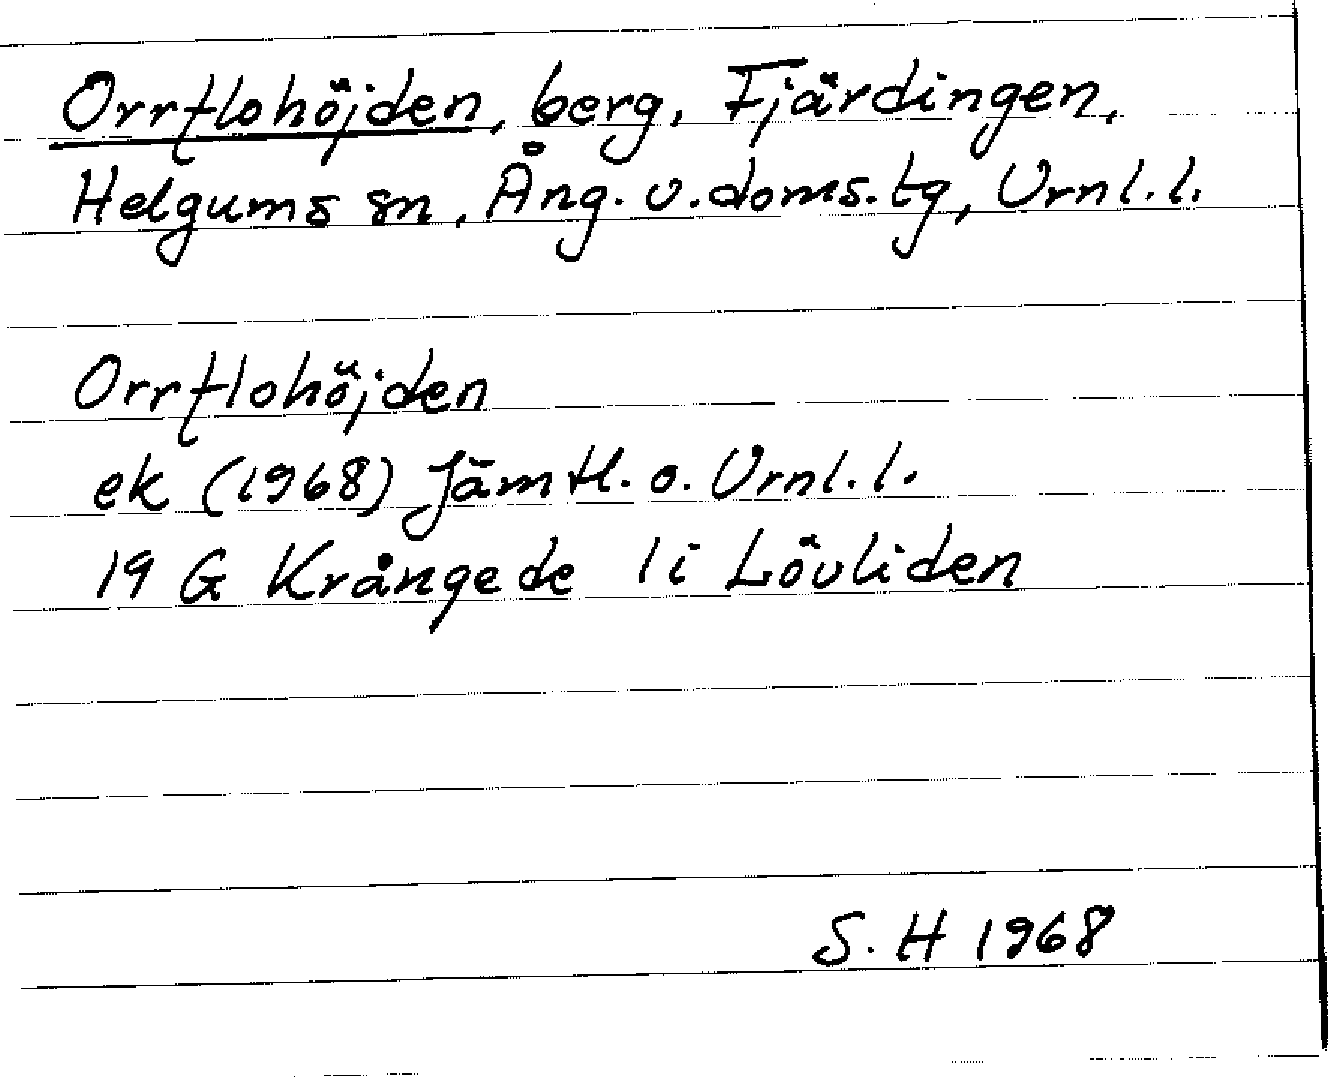 Orrflohöjden, berg, Fjärdingen,
Helgums sn, Ång. v. doms. tg, Vrnl. l.
Orrflohöjden
ek (1968) Jämtl. o. Vrnl. l.
19 G Krångede 1 i Lövliden
S. H 1968